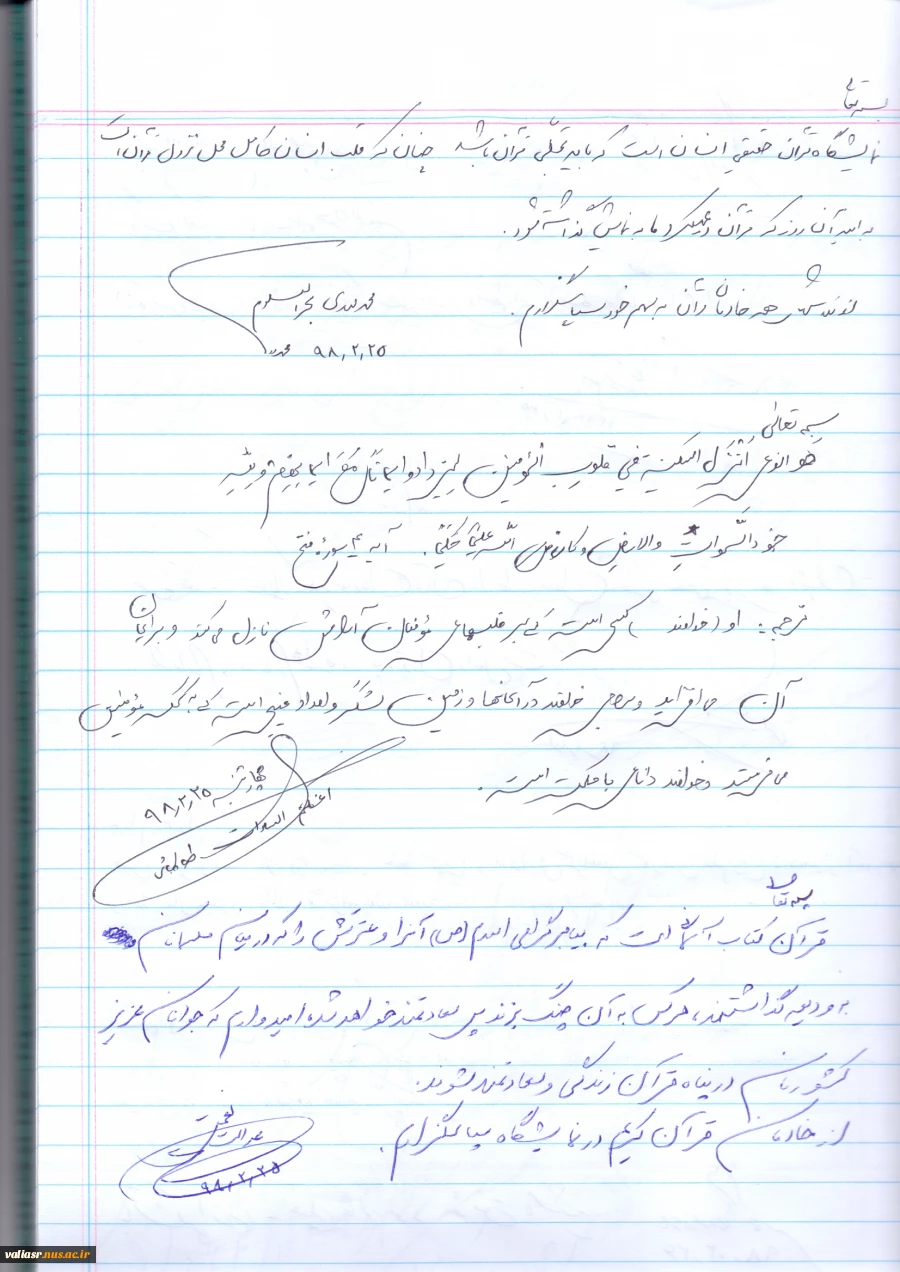 بسمه تعالی
نمایشگاه قرآن حقیقی انسان است که باید تجلّی قرآن باشد چنان که قلب انسان کامل محل نزول قرآن است
به امید آن روز که قرآن در عملکرد ما به نمایش گذاشته شود.
از همه خادمان قرآن به سهم خود سپاسگزارم.
محمدمهدی بحرالعلوم
۹۸,۲,۲۵
بسمه تعالی
هو الذی أنْزَلَ السکینة فی قلوب المؤمنین لیزدادوا ایماناً مَعَ ایمانِهِم و لِلّه
جنود السَّمواتِ والارض وکان اللّه علیماً حکیماً. آیه ۴ سوره فتح
ترجمه: او (خداوند) کسی است که بر قلبهای مؤمنان آرامش نازل می‌کند و بر ایمان
آنان می افزاید و برای خداوند در آسمانها و زمین لشگر و امداد غیبی است که به کمک مؤمنین
می فرستد و خداوند دانای با حکمت است.
چهارشنبه ۹۸,۲,۲۵
اعظم السادات
بسمه تعالی
قرآن کتاب آسمانی است که پیامبر گرامی اسلام (ص) آنرا و عترتش را که در میان مسلمانان
به ودیعه گذاشتند، هرکس به آن چنگ بزند پس سعادتمند خواهد شد، امیدوارم که جوانان عزیز
کشورمان در پناه قرآن زندگی و سعادتمند شوند.
از خادمان قرآن کریم در نمایشگاه سپاسگزارم.
۹۸,۲,۲۵
valiasr.nus.ac.ir